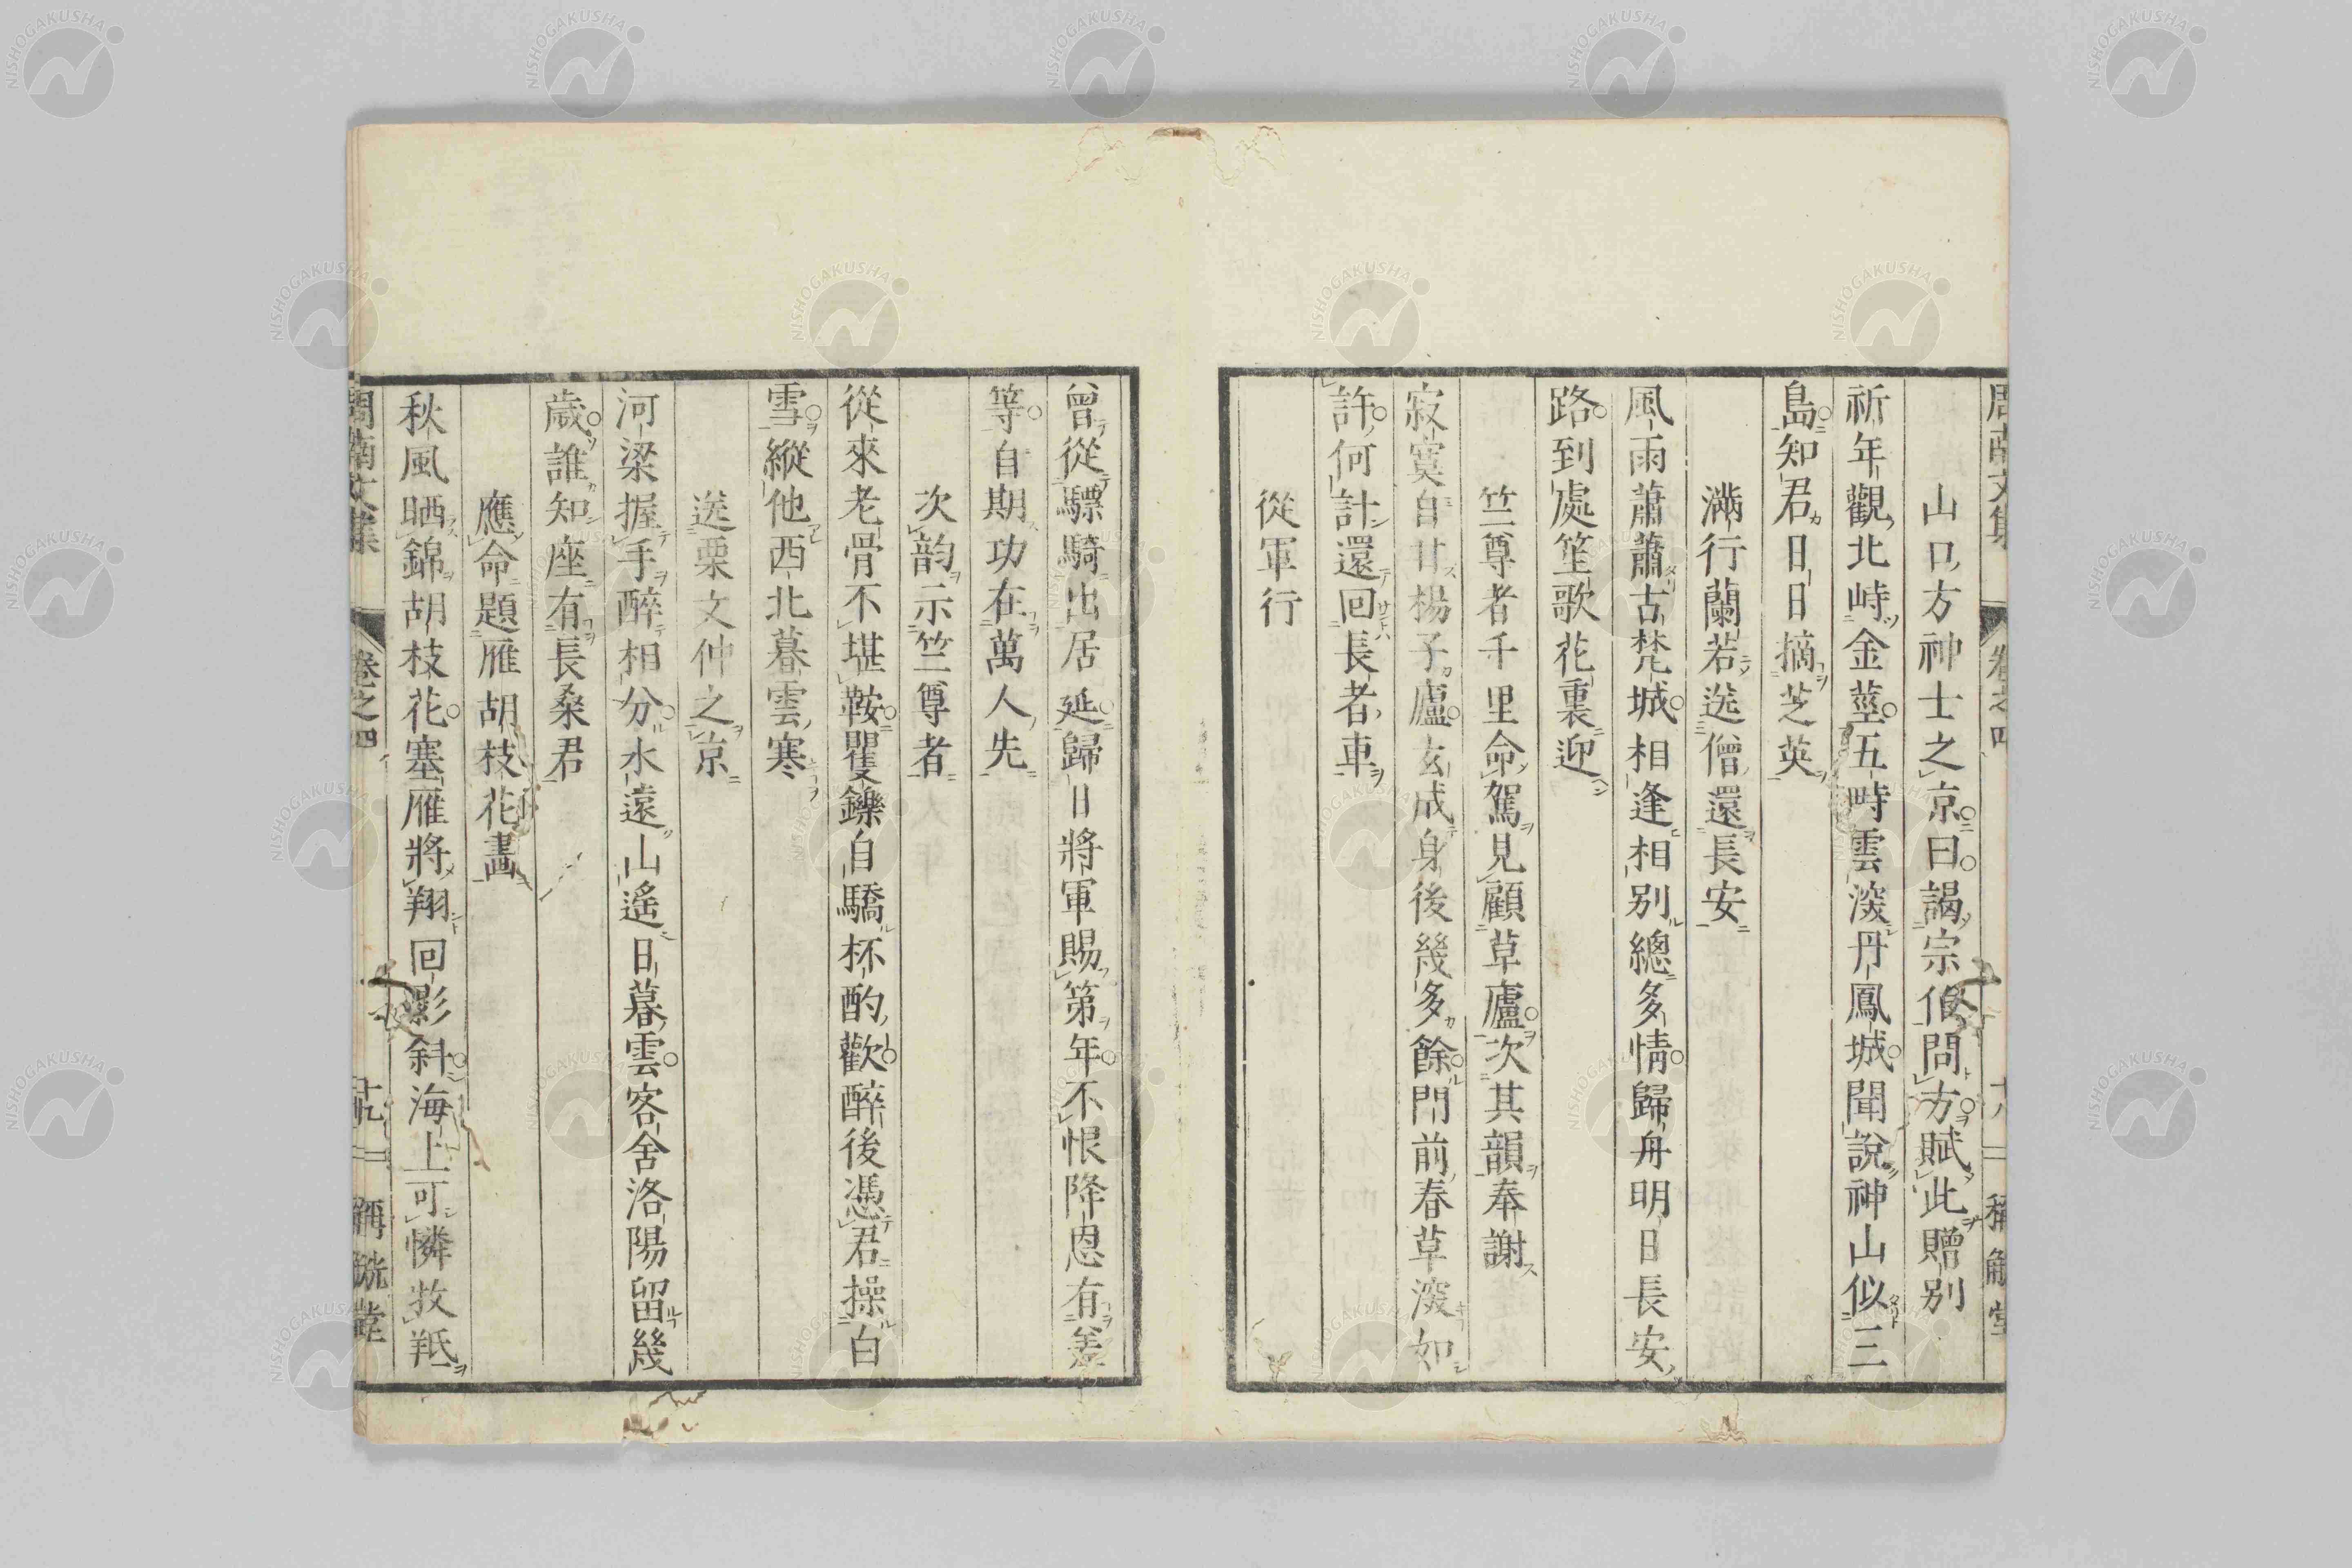 周南文集 卷之四 十八 稱觥堂
山口方神士之京曰謁宗伯問方賦此贈別
祈年觀北峙金莖五畤雲深丹鳳城聞說神山似三
島知君日日摘芝英
滿行蘭若送僧還長安
風雨蕭蕭古梵城相逢相別總多情歸舟明日長安
路到處笙歌花裏迎
竺尊者千里命駕見顧草廬次其韻奉謝
寂寞自甘楊子廬玄成身後幾多餘門前春草深如
許何計還回長者車
從軍行
曾從驃騎出居延歸日將軍賜第年不恨降恩有差
等自期功在萬人先
次韵示竺尊者
從來老骨不堪鞍矍鑠自驕杯酌歡醉後憑君操白
雪縱他西北暮雲寒
送栗文仲之京
河梁握手醉相分水遠山遙日暮雲客舍洛陽留幾
歲誰知座有長桑君
應命題雁胡枝花畫
秋風晒錦胡枝花塞雁將翔回影斜海上可憐牧羝
周南文集 卷之四 十九 稱觥堂
NISHOGAKUSHA